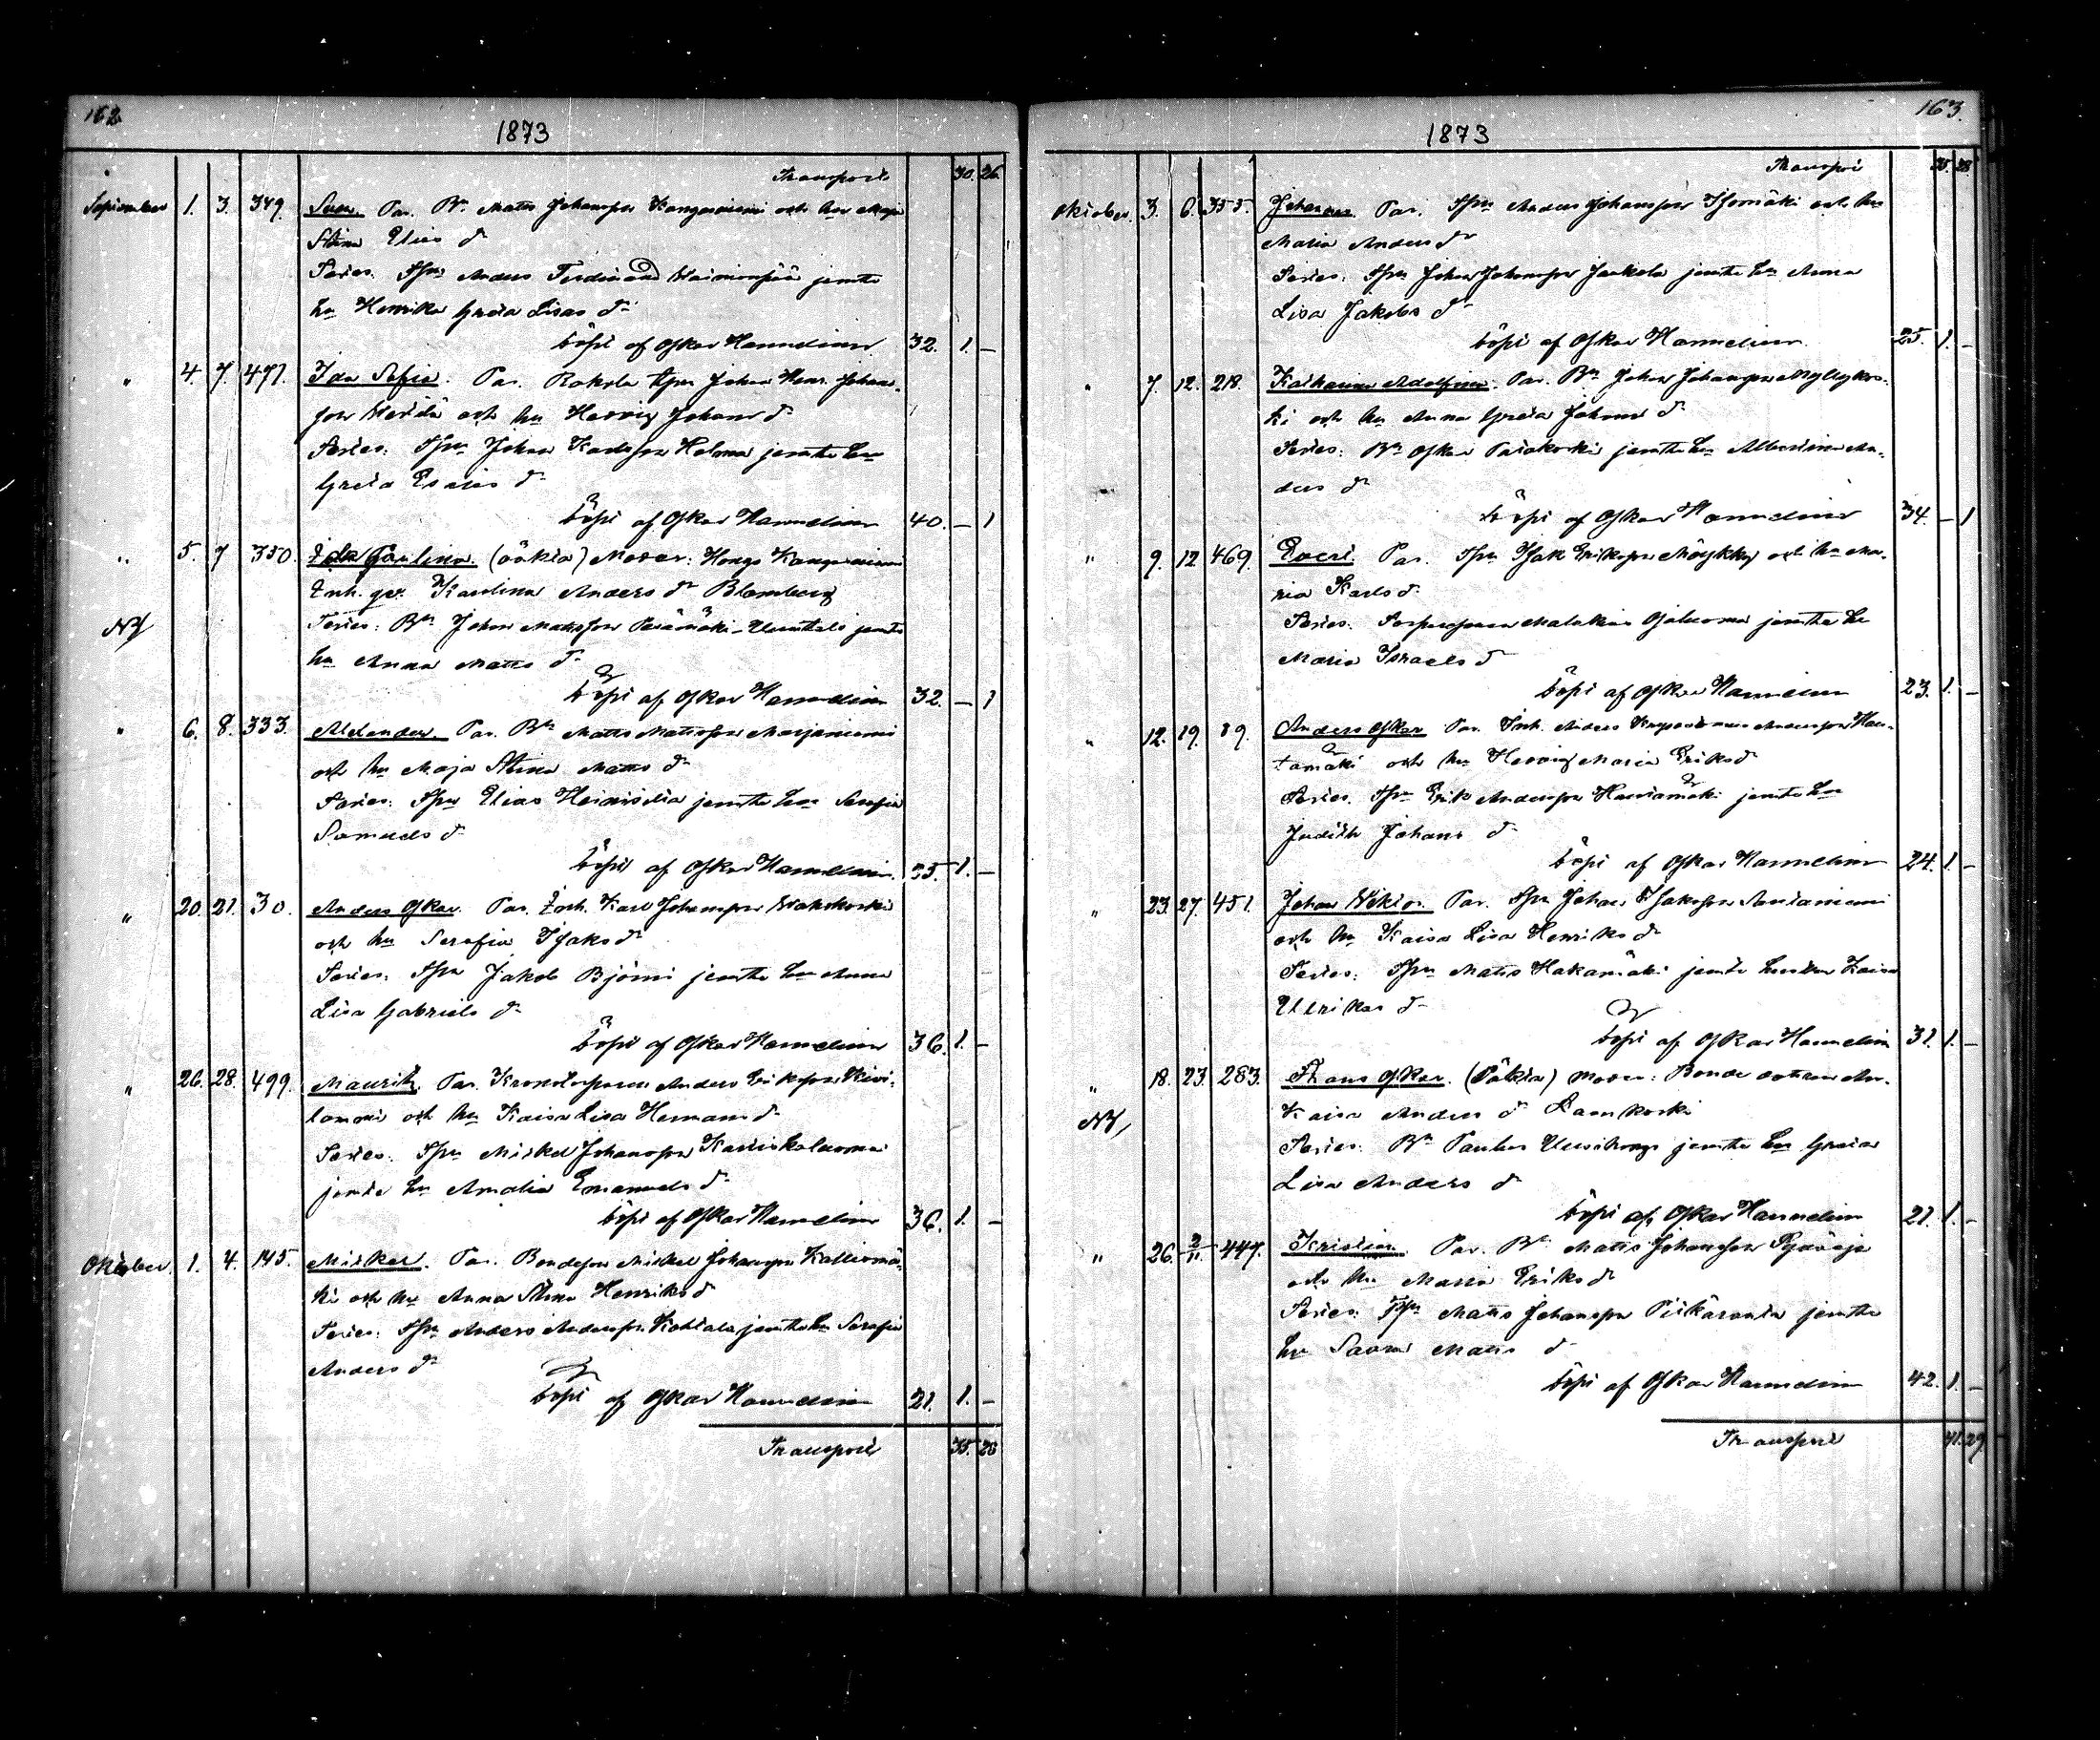 162
1873
Transport 30. 26.
September 1. 3. 349. Par. Bn Matts Johansson Kangasniemi och hu Maja
Stina Elias dr
Testes. Spn Anders Ferdinand jemte
hu Henrika Greta Lisas dr
Döpt af Oskar Hannelius 32. 1. –
" 4. 7. 477. Ida Sofia. Par. Johan Henr. Johans-
son och hu Hedvig Johans dr
Testes: Spn Johan Karlsson Holma jemte hu
Greta Esaias dr
Döpt af Oskar Hannelius 40. – 1
" 5. 7 350. Ida Paulina. (oäkta) Moder: Kangasniemi
Inh. Karolina Anders dr Blomberg
NB Testes: Bn Johan Mattsson jemte
hu Anna Matts dr
Döpt af Oskar Hannelius 32. – 1
" 6. 8. 333. Alexander. Par. Bn Matts Mattsson Marjaniemi
och hu Maja Stina Matts dr
Testes: Spn Elias jemte hu Serafia
Samuels dr
Döpt af Oskar Hannelius 35. 1. –
" 20. 21. 30. Anders Oskar. Par. Karl Johansson
och hu Serafia Isaks dr
Testes: Spn Jakob Björni jemte hu Anna
Lisa Gabriels dr
Döpt af Oskar Hannelius 36. 1. –
" 26. 28. 499. Mauritz. Par. Kronotorparen Anders Eriksson Kivi-
lammi och hu Kaisa Lisa Hermans dr
Testes. Spn Mickel Johansson
jemte hu Amalia Emanuels dr
Döpt af Oskar Hannelius 36. 1. –
Oktober. 1. 4. 145. Mickel. Par. Bondeson Mickel Johansson Kalliomä-
ki och hu Anna Stina Henriks dr
Testes: Spn Anders Andersson Kohtala jemte hu Serafia
Anders dr
Döpt af Oskar Hannelius 21. 1. –
Transport 35. 28
163.
1873
Transport 35. 28
Oktober. 3. 6. 355. Johannes. Par. Spn Anders Johansson Isomäki och hu
Maria Anders dr
Testes: Spn Johan Johansson Jaakola jemte hu Anna
Lisa Jakobs dr
Döpt af Oskar Hannelius. 25. 1. –
" 7. 12. 218. Katharina Adolfina. Par. Bn Johan Johansson Myllykos-
ki och hu Anna Greta Johans dr
Testes: Bn Oskar jemte hu Albertina An-
ders dr
Döpt af Oskar Hannelius 34. – 1
" 9. 12 469. Par. Spn Isak Eriksson och hu Ma-
ria Karls dr
Testes. Malakias Ojaluoma jemte hu
Maria Israels dr
Döpt af Oskar Hannelius 23. 1. –
" 12. 19. 89. Anders Oskar Par. Inh. Anders Andersson Hau-
tamäki och hu Hedvig Maria Eriks dr
Testes. Spn Erik Andersson Hautamäki jemte hu
Judith Johans dr
Döpt af Oskar Hannelius 24. 1. –
" 23. 27. 451. Johan Viktor. Par. Spn Johan Isaksson Santaniemi
och hu Kaisa Lisa Henriks dr
Testes: Spn Matts Hakamäki jemte hustru Kaisa
Ulrikas dr
Döpt af Oskar Hannelius 31. 1. –
" 18. 23. 283. Frans Oskar. (Oäkta) Moder: Bonde dottren
Kaisa Anders dr
NB Testes: Bn jemte hu Greta
Lisa Anders dr
Döpt af Oskar Hannelius 21. 1. –
" 26. 2/11 447. Kristian. Par. Bn Matts Johansson
och hu Maria Eriks dr
Testes: Spn Matts Johansson jemte
hu Sanna Matts dr
Döpt af Oskar Hannelius 42. 1. –
Transport 41. 29